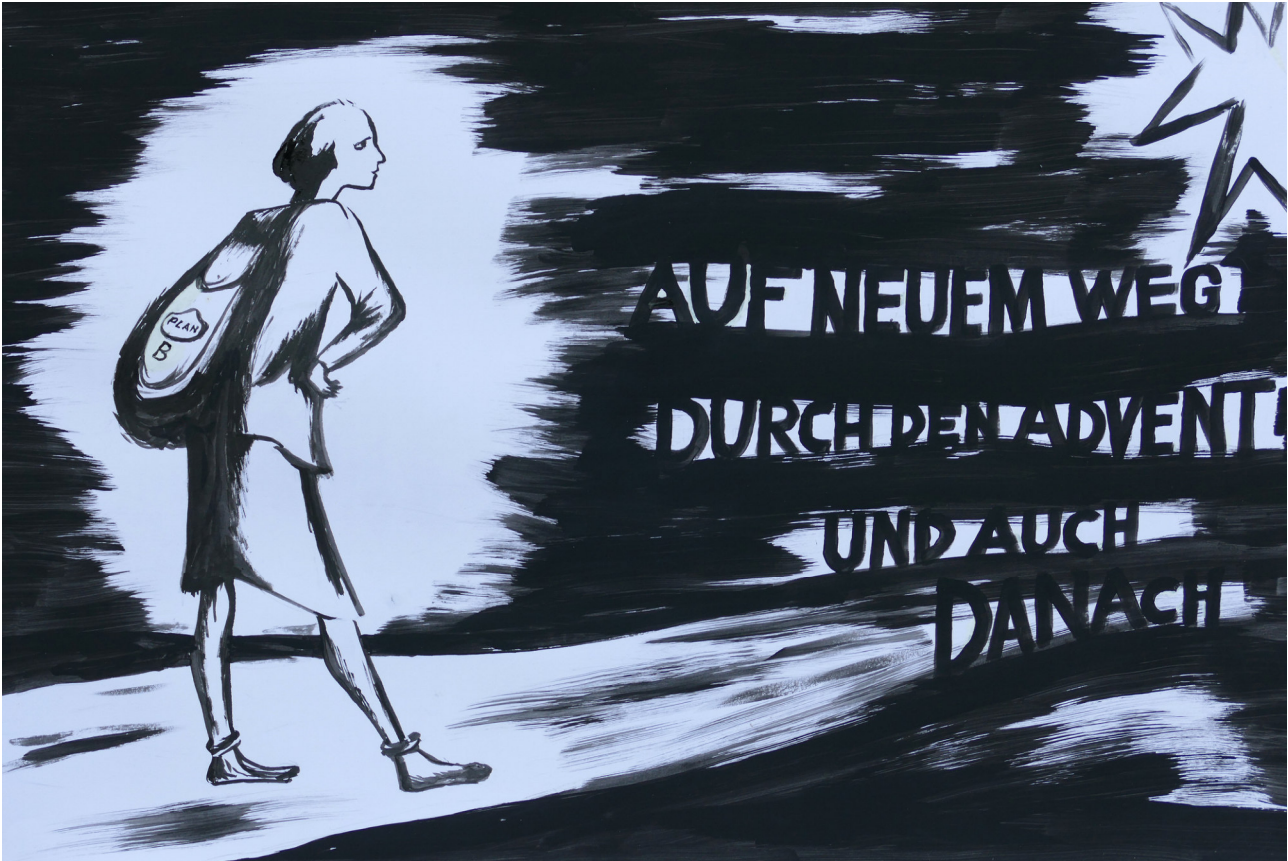 PLAN
B
AUF NEUEM WEG
DURCH DEN ADVENT
UND AUCH
DANACH